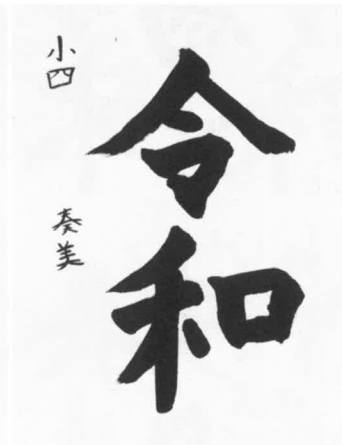 令和
小四
奏美